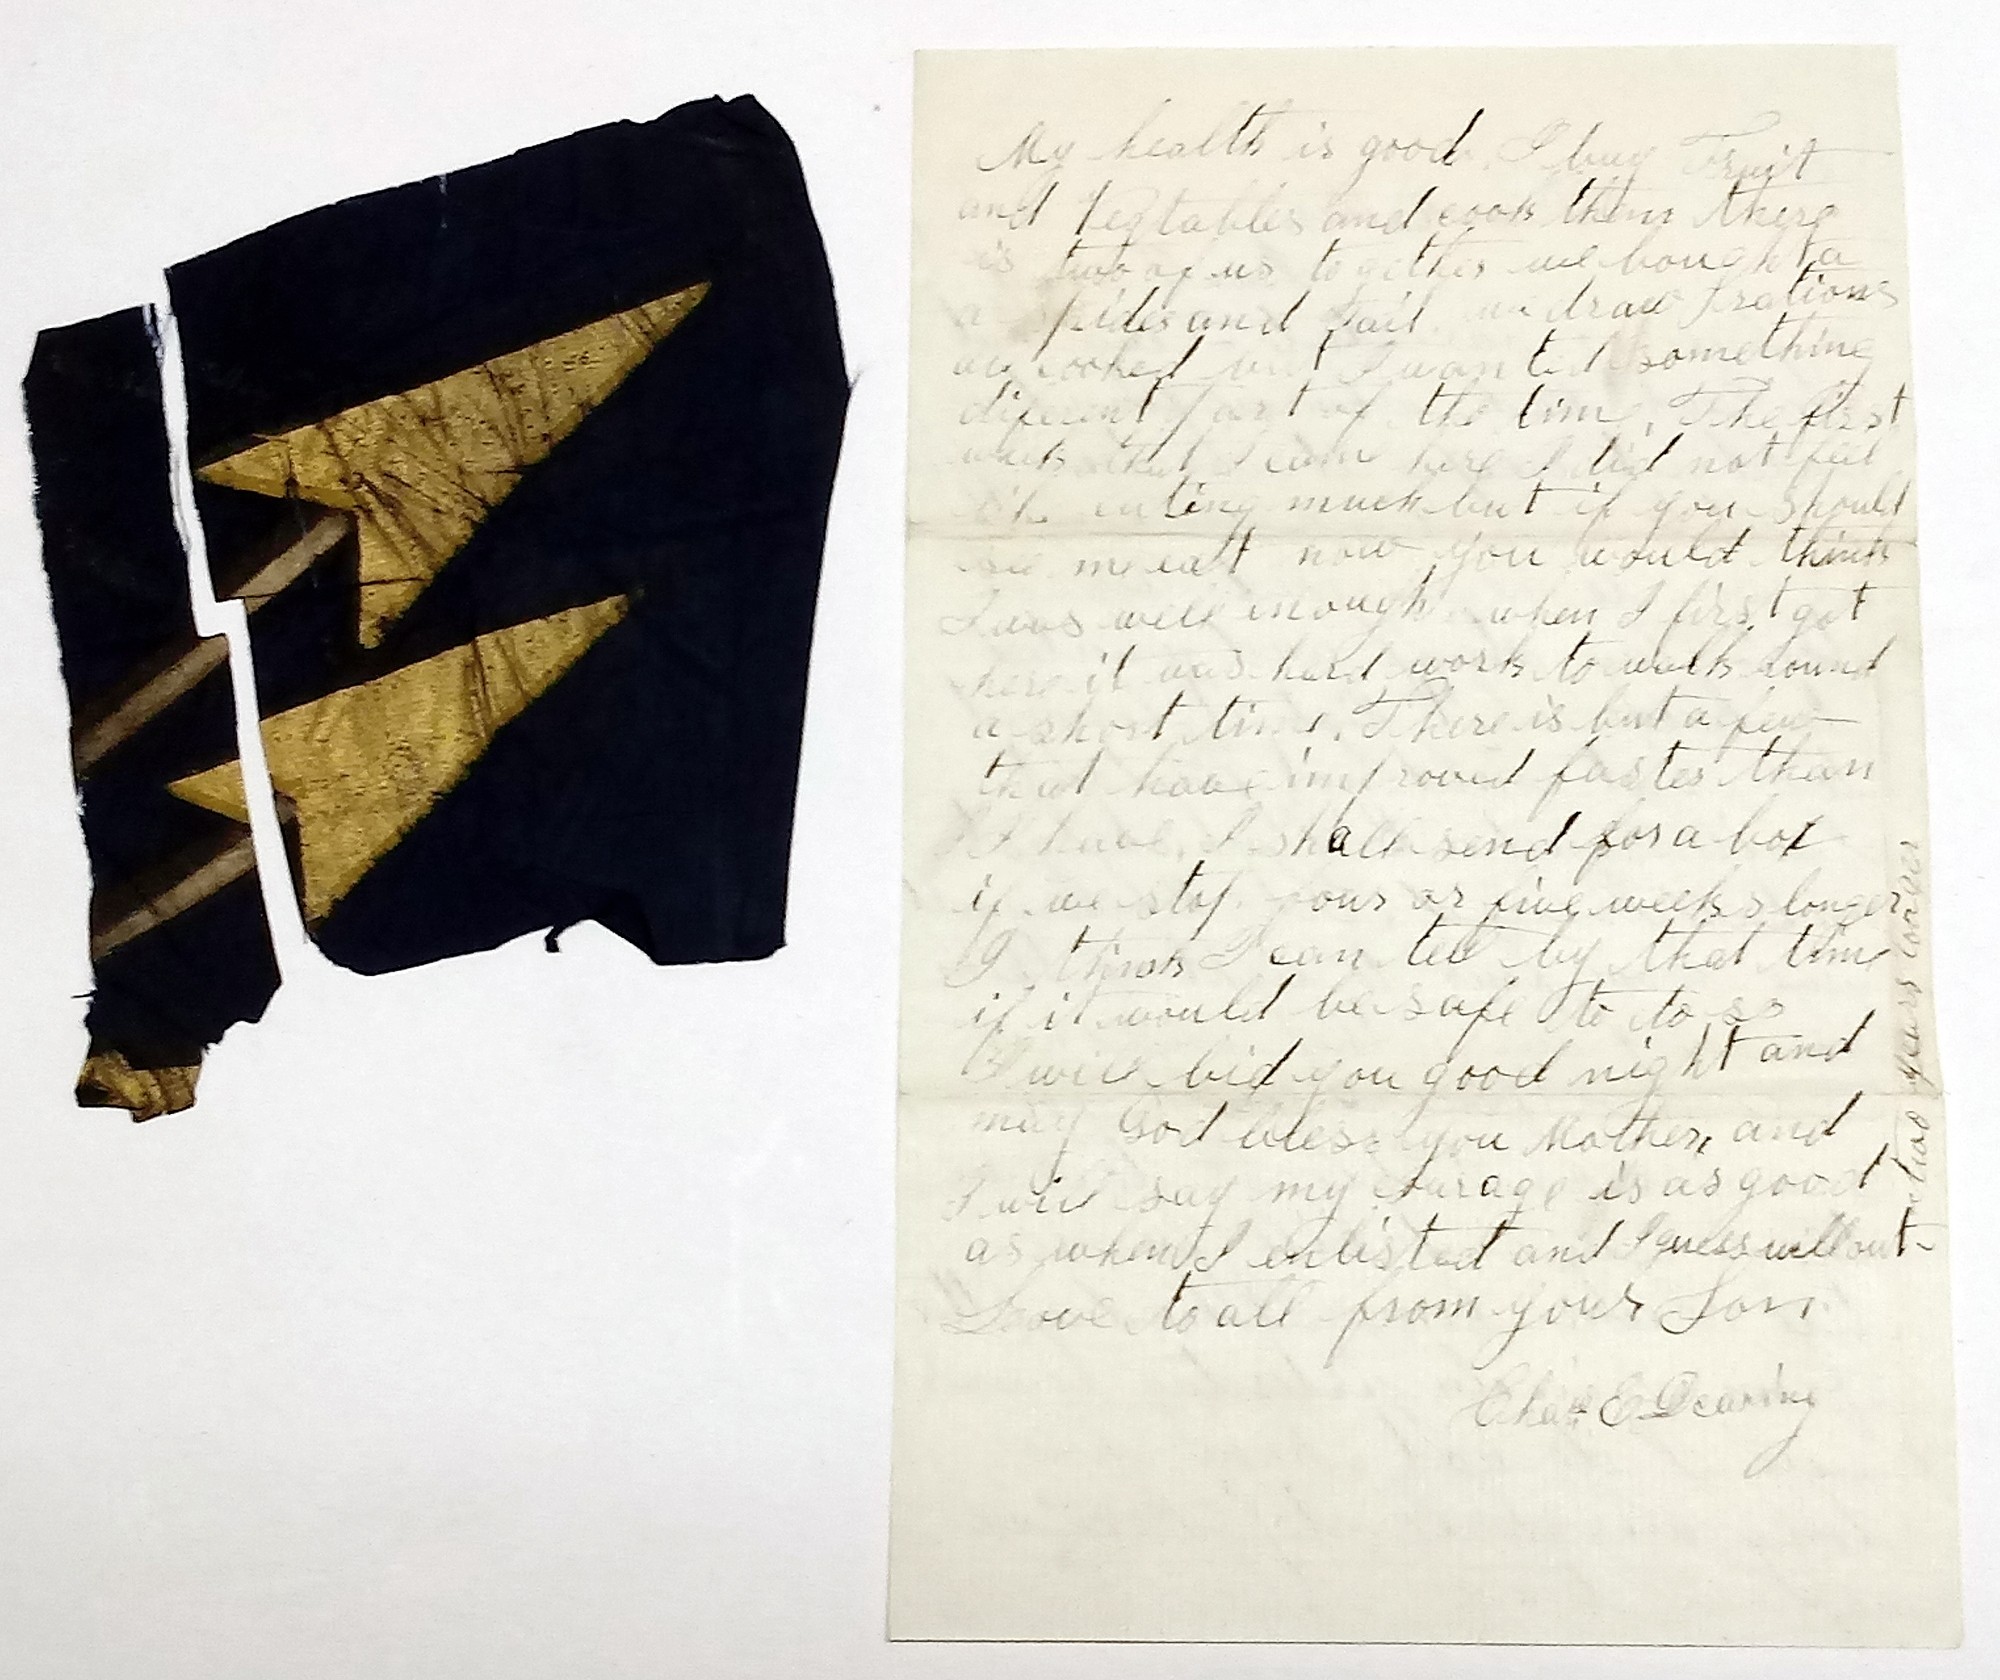 My health is good. I buy Fruit
and Vegtables and cook them there
is two of us together we bought a
a spider and pail. we draw rations
all cooked but I wanted something
diferent part of the time. The first
weeks that I cam here I did not feel
like eating much but if you should
see me eat now you would think
I was well enough when I first got
here it was hard work to walk round
a short time. There is but a few
that have improved faster than
I have. I shall send for a box
if we stop four or five weeks longer
I think I can tell by that time
if it would be safe to do so
I will bid you good night and
may God bless you Mother, and
I will say my courage is as good
as when I enlisted and I guess will out-
Love to all from your Son.
Chas E Dearing
two years longer